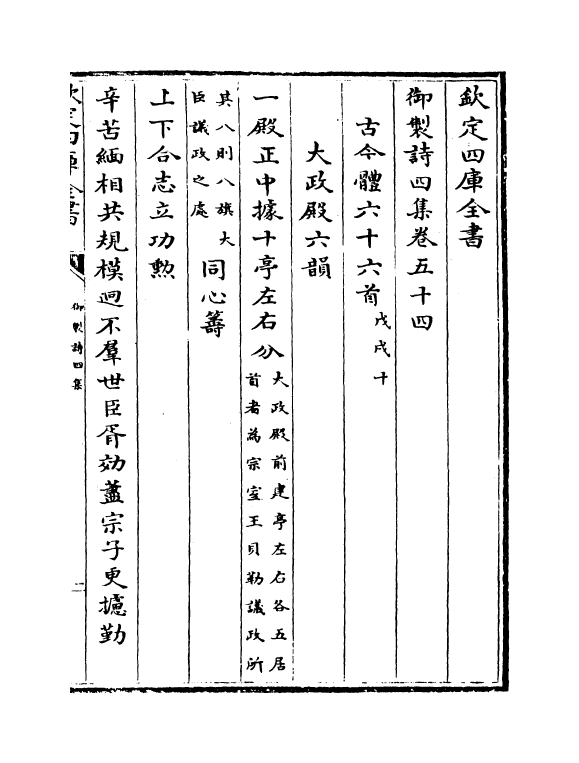 欽定四庫全書
御製詩四集卷五十四
古今體六十六首戊戌十
大政殿六韻
一殿正中據十亭左右分大政殿前建亭左右各五居
首者為宗室王貝勒議政所
其八則八旗大
臣議政之處同心籌
上下合志立功勲
辛苦緬相共規模迥不羣世臣胥効藎宗子更攄勤
欽定四庫全書
御製詩四集